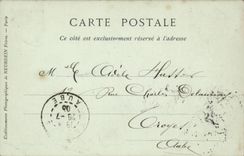 CARTE POSTALE
Ce côté est exclusivement réservé à l'adresse
Etablissements Photographiques de NEURDEIN Frères. — Paris
Cécile
rue Charles Delaunay
Troyes
Aube
AUBE